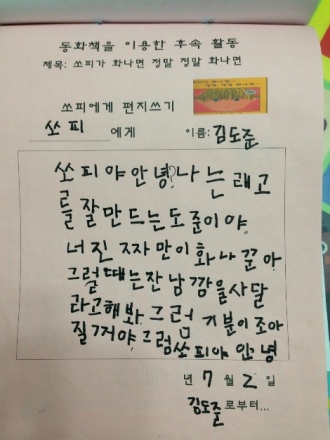 동화책을 이용한 후속 활동
제목: 쏘피가 화나면 정말 정말 화나면
쏘피에게 편지쓰기
쏘피 에게 이름: 김도준
쏘피야안녕? 나는 래고
를잘만드는도준이야.
너진짜만이화나꾼아
그럴때는잔남깜을사달
라고해봐. 그럼 기분이조아
질거야. 그럼쏘피야 안녕
년 7 월 2 일
김도준 로부터...